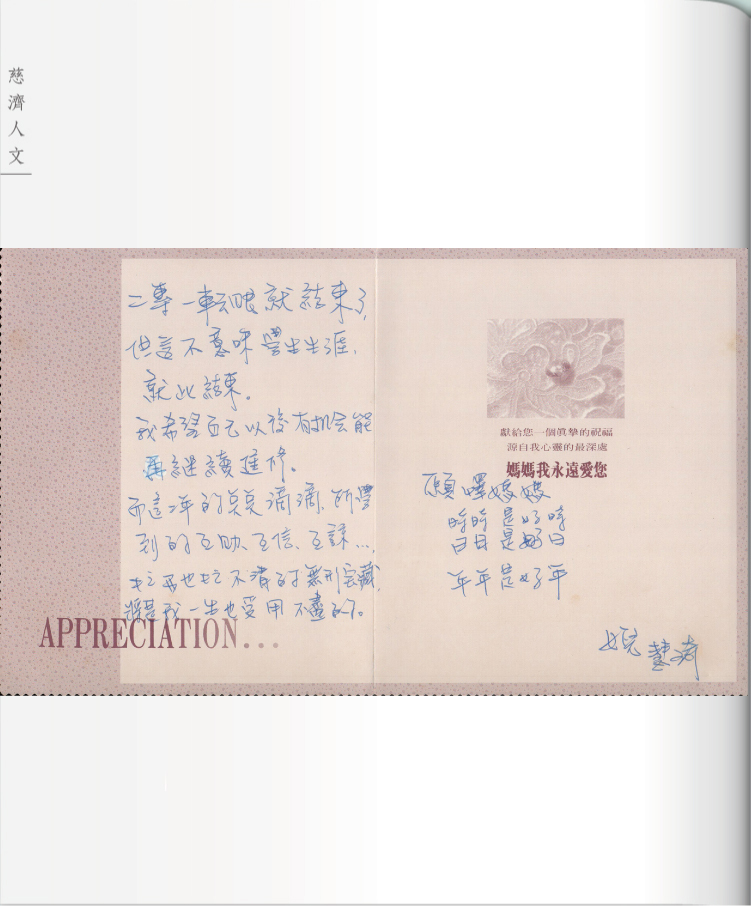 慈濟人文
二專一転眼就結束了,
但這不意味學生生涯,
就此結束。
我希望自己以後有机会能
再継續進修。
而這二年的點點滴滴,所學
到的互助、互信、互諒…,
也不清的無形宝藏,
將是我一生也受用不盡的。
APPRECIATION...
獻給您一個真摯的祝福
源自我心靈的最深處
媽媽我永遠愛您
願噿媽媽
時時是好時
日日是好日
年年是好年
婗慧琦